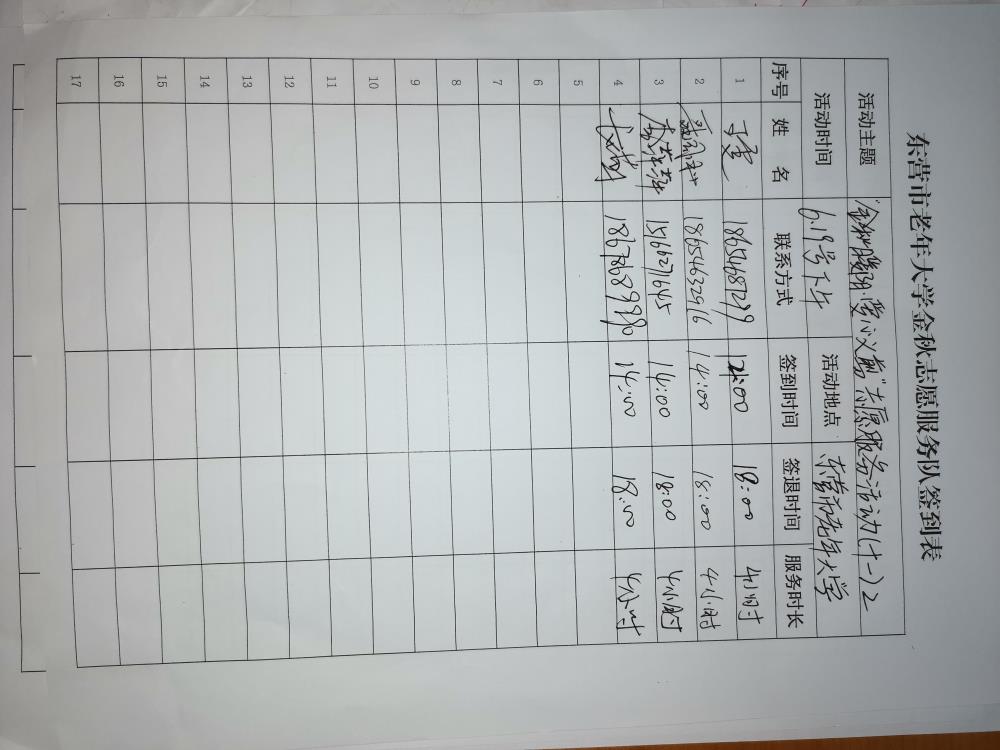 东营市老年大学金秋志愿服务队签到表
活动主题 "金秋暖阳·爱心义剪"志愿服务活动(十一)2
活动时间 6.19号下午 活动地点 东营市老年大学
序号 姓名 联系方式 签到时间 签退时间 服务时长
1 18654687279 14:00 18:00 4小时
2 18654632916 14:00 18:00 4小时
3 15166271645 14:00 18:00 4小时
4 18678689990 14:00 18:00 4小时
5
6
7
8
9
10
11
12
13
14
15
16
17